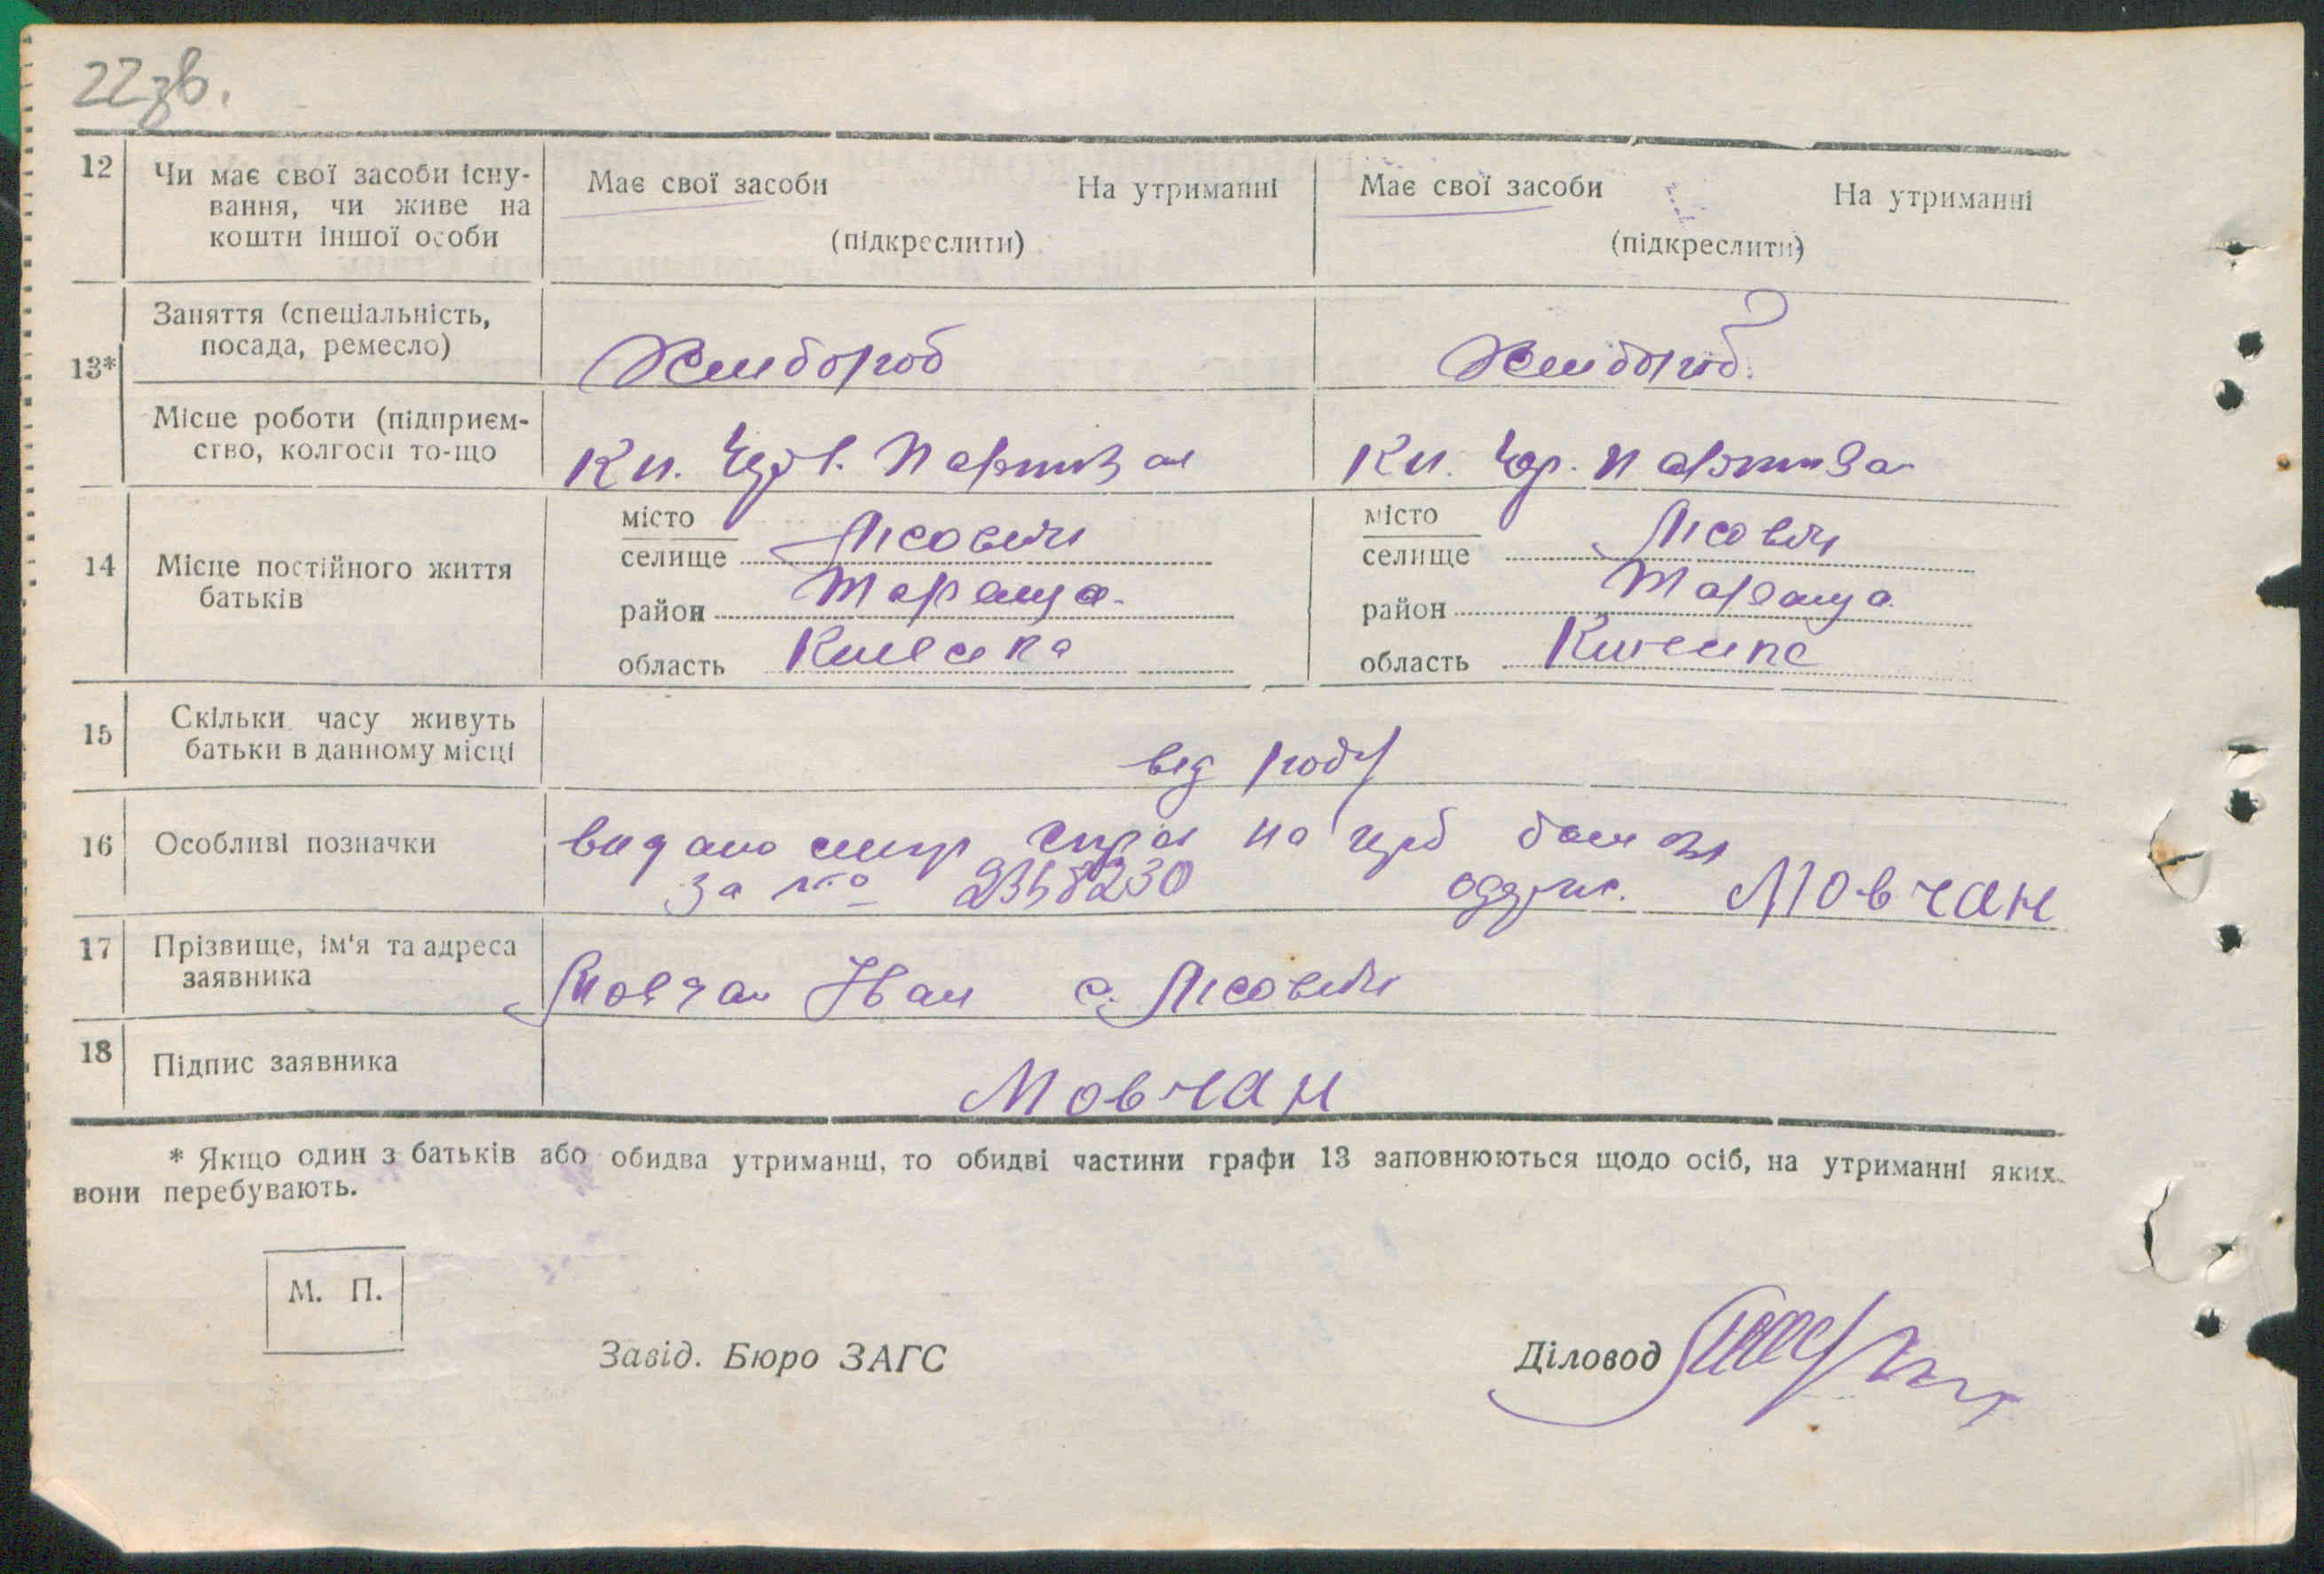 22зв.
12 Чи має свої засоби існу-
вання, чи живе на
кошти іншої особи
Має свої засоби На утриманні
(підкреслити)
Має свої засоби На утриманні
(підкреслити)
13* Заняття (спеціальність,
посада, ремесло)
Хлибороб
Хлибороб
Місце роботи (підприєм-
ство, колгосп то-що
Кп. Черв. Партизан
Кп. Чер. Партизан
14 Місце постійного життя
батьків
місто
селище Лісовичі
район Тараща
область Київська
місто
селище Лісовичі
район Тараща
область Київська
15 Скільки часу живуть
батьки в данному місці
від роду
16 Особливі позначки
видано на батька
за №о
Мовчан
17 Прізвище, ім'я та адреса
заявника
Мовчан Іван с. Лісовичі
18 Підпис заявника
Мовчан
* Якщо один з батьків або обидва утриманці, то обидві частини графи 13 заповнюються щодо осіб, на утриманні яких
вони перебувають.
М. П.
Завід. Бюро ЗАГС
Діловод